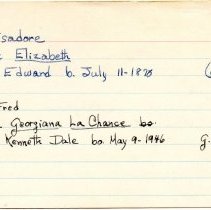 Isadore
Elizabeth
Edward b. July 11-1878
Fred
Georgiana La Chance bo.
Kenneth Dale bo. May 9-1946 g.